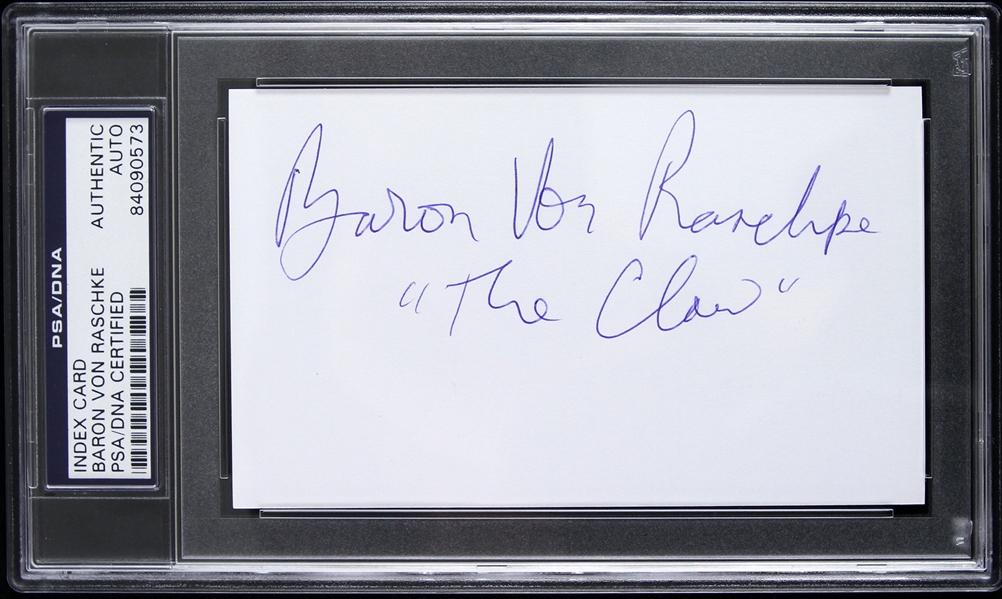 PSA/DNA
INDEX CARD
BARON VON RASCHKE
PSA/DNA CERTIFIED
AUTHENTIC
AUTO
84090573
Baron Von Raschke
"The Claw"